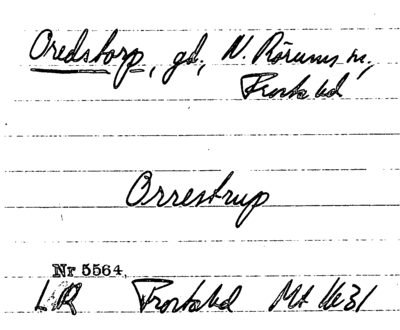 Oredstorp, gd, N. Rörums sn,
Frosta hd
Orrestrup
Nr 5564
LR Frosta hd Mt 1631